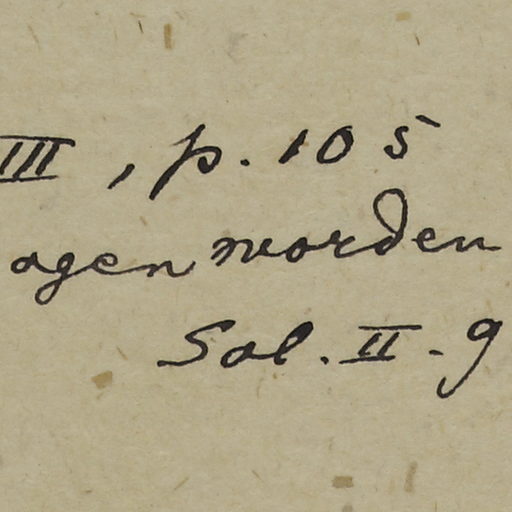 III, p. 105
agen worden
Sol. II. 9